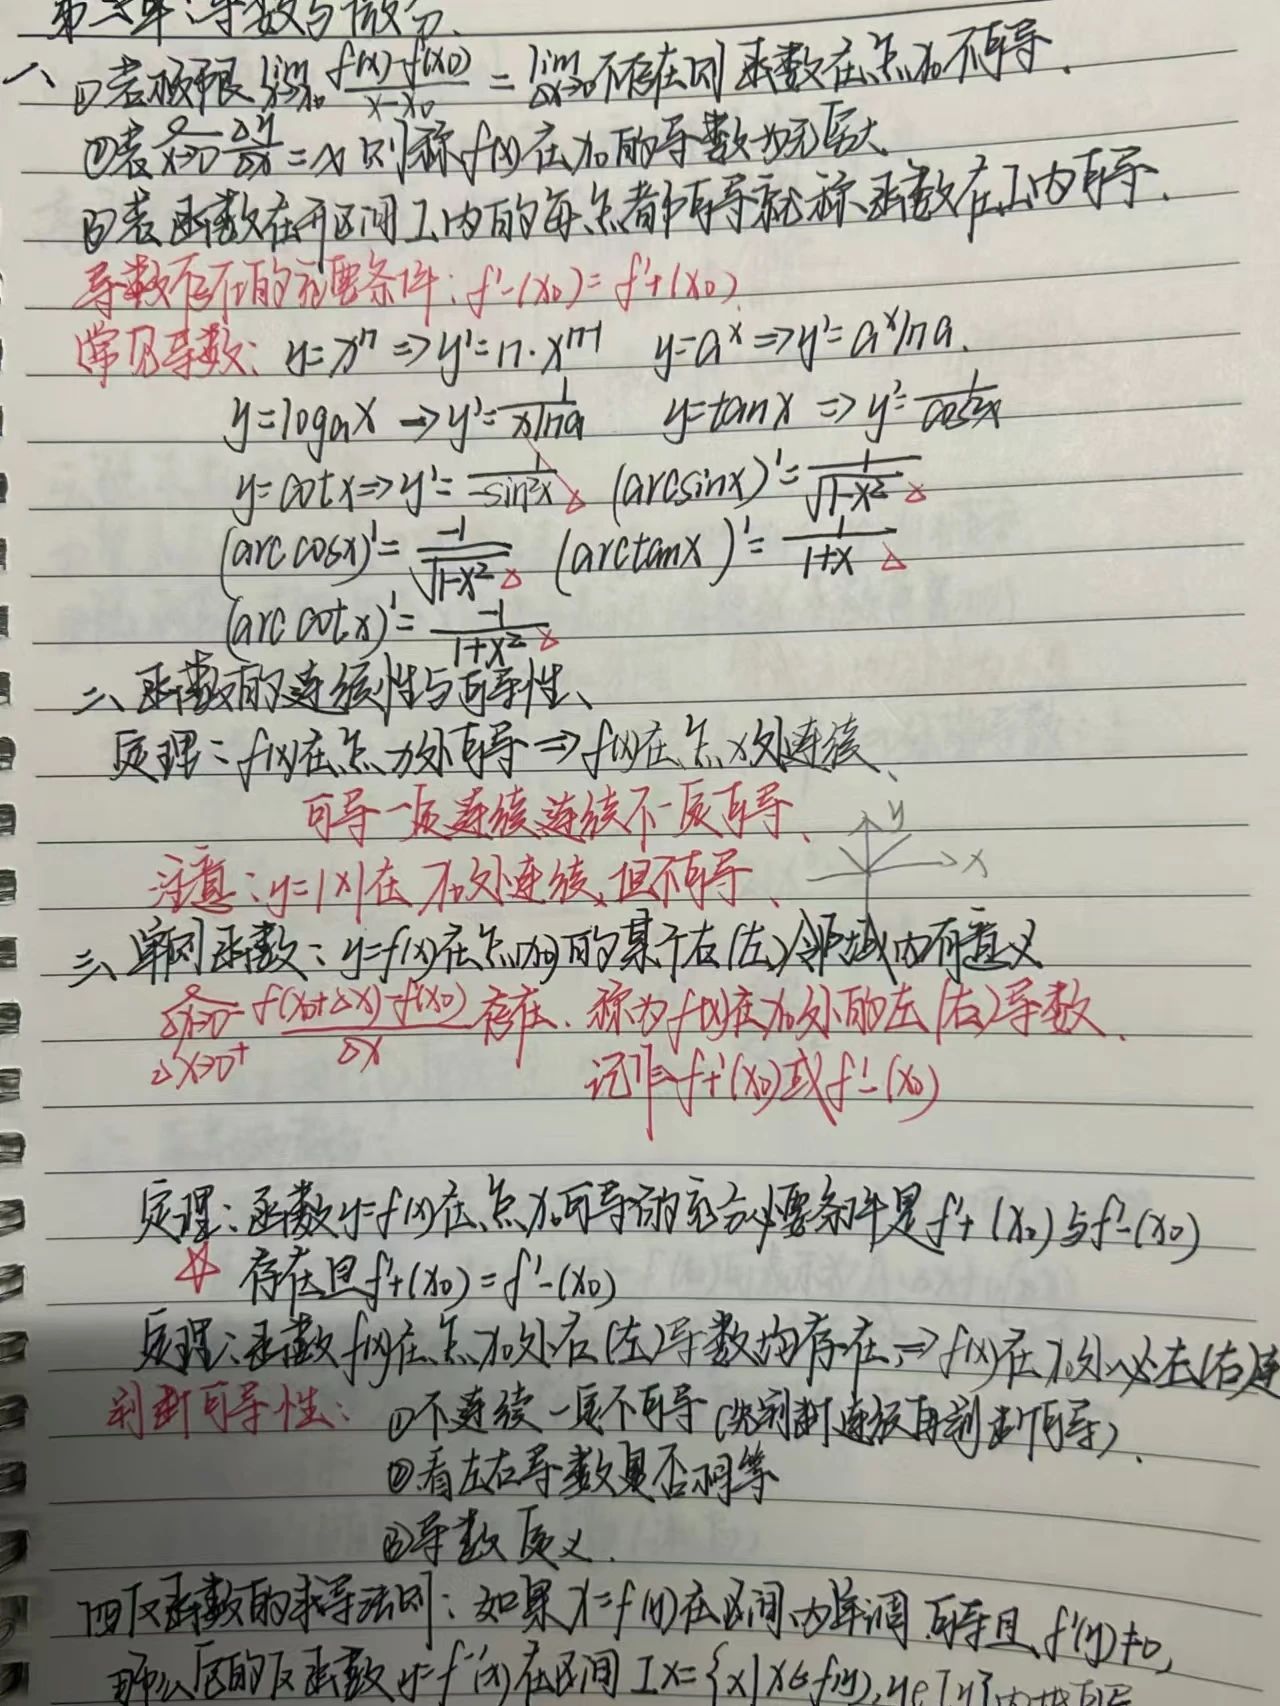 第二章:导数与微分.
一、①若极限 lim x→x0 f(x)-f(x0)/x-x0 = lim Δx→0 不存在则函数在点x0不可导.
②若 x→0 Δy/Δx = ∞ 则称f(x)在x0的导数为无穷大
③若函数在开区间I内的每点都可导就称函数在I内可导.
导数存在的充要条件: f'-(x0)=f'+(x0)
常见导数: y=x^n ⇒ y'=n·x^n-1 y=a^x ⇒ y'=a^x lna.
y=logax → y'=1/xlna y=tanx ⇒ y'=1/cos²x
y=cotx ⇒ y'=1/-sin²x △ (arcsinx)'=1/√1-x² △
(arccosx)'=-1/√1-x² △ (arctanx)'=1/1+x △
(arccotx)'=-1/1+x² △
二、函数的连续性与可导性、
定理: f(x)在点x处可导 ⇒ f(x)在点x处连续、
可导一定连续,连续不一定可导、
y
注意: y=|x|在x0处连续,但不可导、
x
三、单侧函数: y=f(x)在点(x0)的某个右(左)邻域内有意义
Δx→0⁻ f(x0+Δx)-f(x0)/Δx 存在. 称为f(x)在x0处的左(右)导数.
Δx→0⁺
记作 f+'(x0)或f'-(x0)
定理: 函数y=f(x)在点x0可导的充分必要条件是f'+(x0)与f'-(x0)
☆ 存在且f'+(x0)=f'-(x0)
定理: 函数f(x)在点x0处右(左)导数均存在, ⇒ f(x)在x0处必左(右)连
判断可导性: ①不连续一定不可导(先判断连续再判断可导).
②看左右导数是否相等
③导数定义.
四反函数的求导法则: 如果x=f(y)在区间内单调可导且f'(y)≠0,
那么它的反函数y=f⁻¹(x)在区间Ix={x|x=f(y),y∈Iy}内也可导